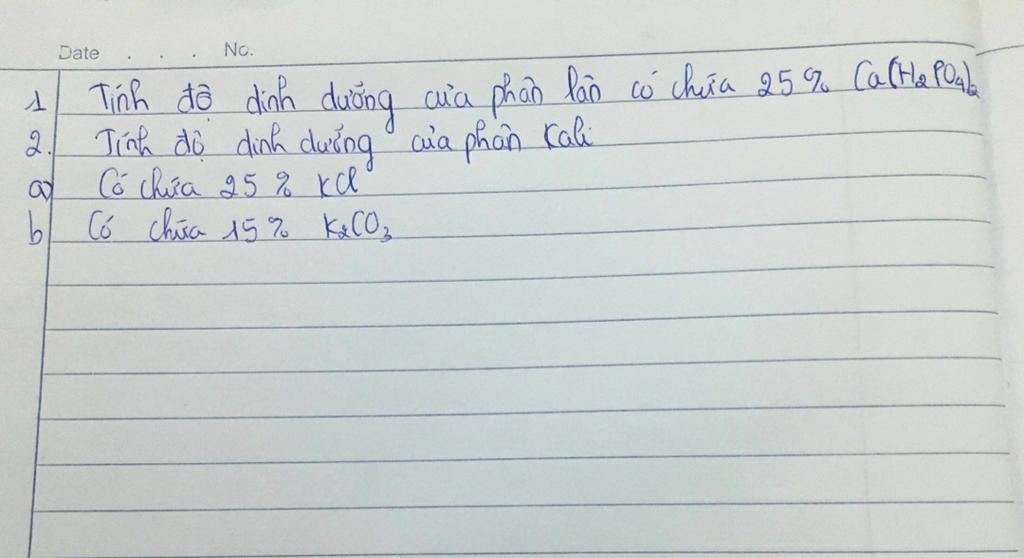 Date . . . No.
1 Tính độ dinh dưỡng của phân lân có chứa 25% Ca(H₂PO₄)₂
2. Tính độ dinh dưỡng của phân Kali
a) Có chứa 25% KCl
b Có chứa 15% K₂CO₃